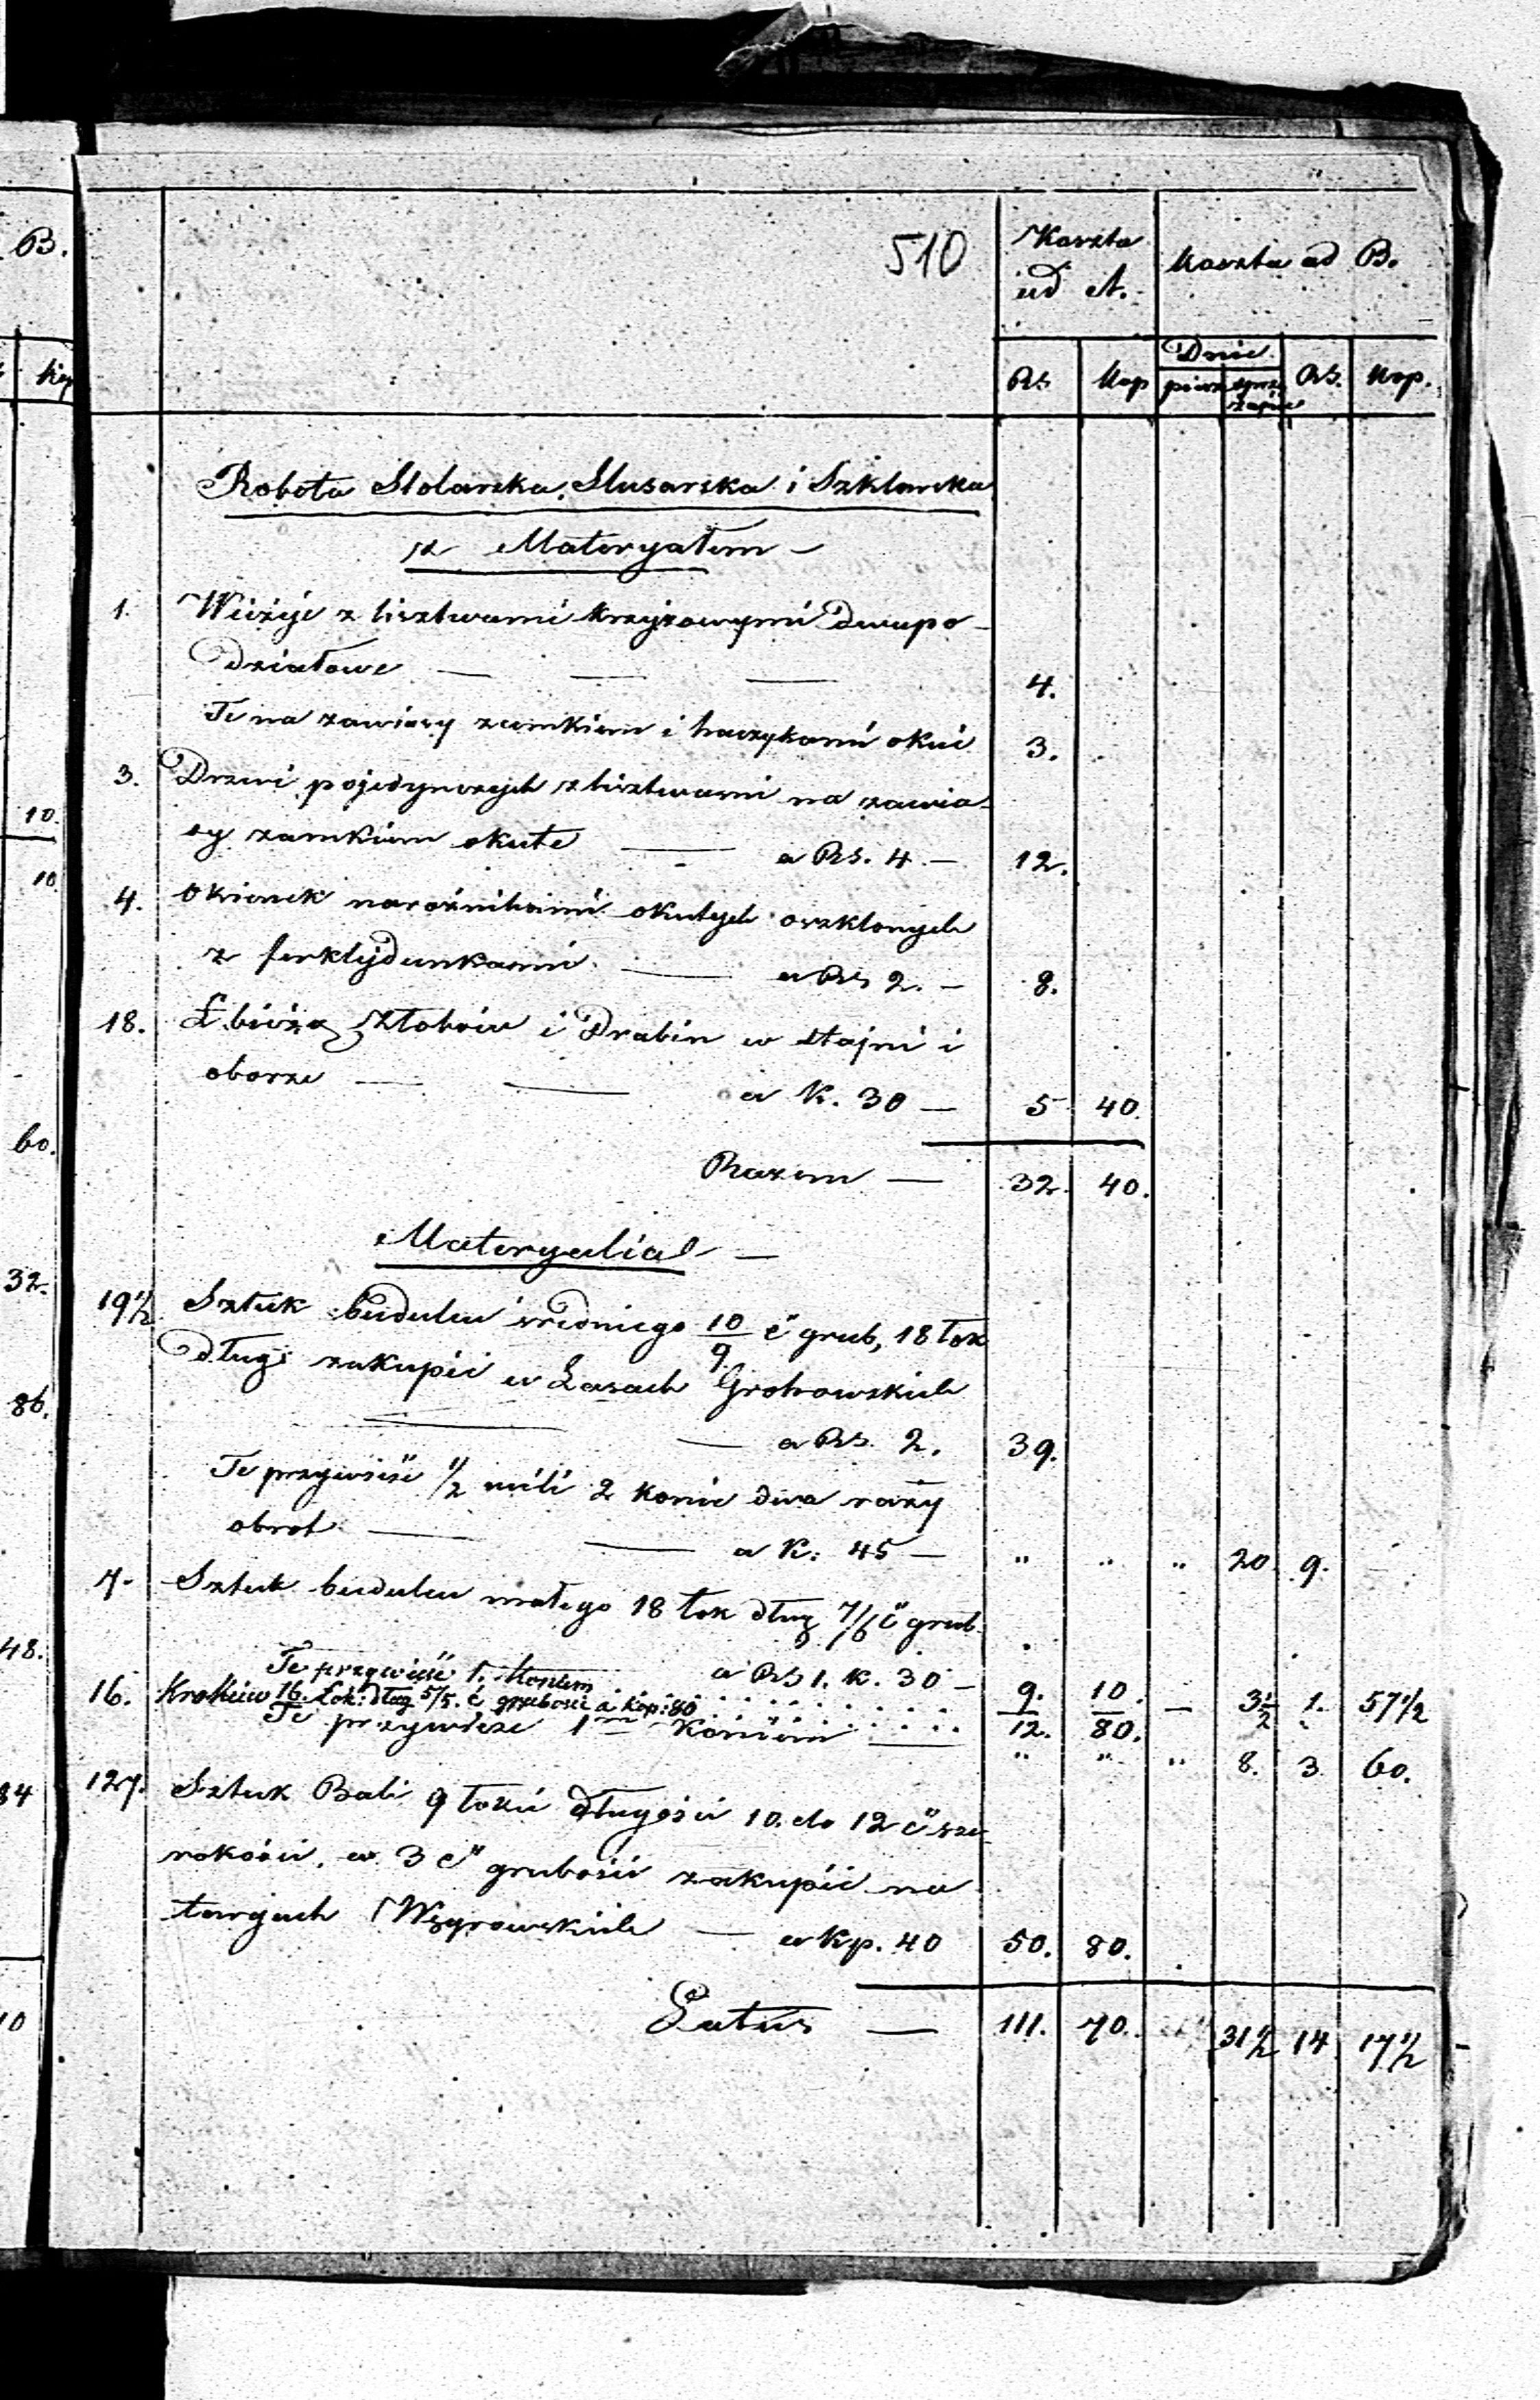 B.
Kop
10.
10
60.
32.
86.
48.
84
10
510
Koszta ad A.
Koszta ad B.
Dnie
RS
Kop
piesze
sprzężajne
RS.
Kop.
Robota Stolarska, Slusarska i Szklarska
z Materyałem —
1. Wieżje z lisztwami krzyżowymi dwupo-
działowe — — — 4.
Te na zawiasy zamkiem i haczykami okuć 3.
3. Drzwi pojedynczych z lisztwami na zawia-
sy zamkiem okute — a RS. 4. — 12.
4. Okienek narożnikami okutych oszklonych
z ferklejdunkami — a RS 2. — 8.
18. Ł. bieżą. żłobów i Drabin w stajni i
oborze — — a K. 30 — 5 40.
Razem — 32. 40.
Materyalia —
19 1/2 Sztuk budulcu średniego 10/9 c" grub, 18 łok
długi zakupić w Lasach Grohowskich
— a RS. 2. 39.
Te przywieść 1/2 mili 2 konie dwa razy
obrot — — a K. 45 — " " " 20 9.
7. Sztuk budulcu małego 18 łok dług 7/6 c" grub.
a RS 1. K. 30 —
Te przywieść 1. Koniem 9. 10. — 3 1/2 1. 57 1/2
16. Krokiew 16. Łok: dług 5/5. c grubości a kop: 80 12. 80.
Te przywieźć 1 Koniem — " " " 8. 3 60.
127. Sztuk Bali 9 łokci długości 10. do 12 c" sze-
rokości, w 3 c" grubości zakupić na
targach Węgrowskich — a Kp. 40 50. 80.
Latus — 111. 70. 31 1/2 14 17 1/2